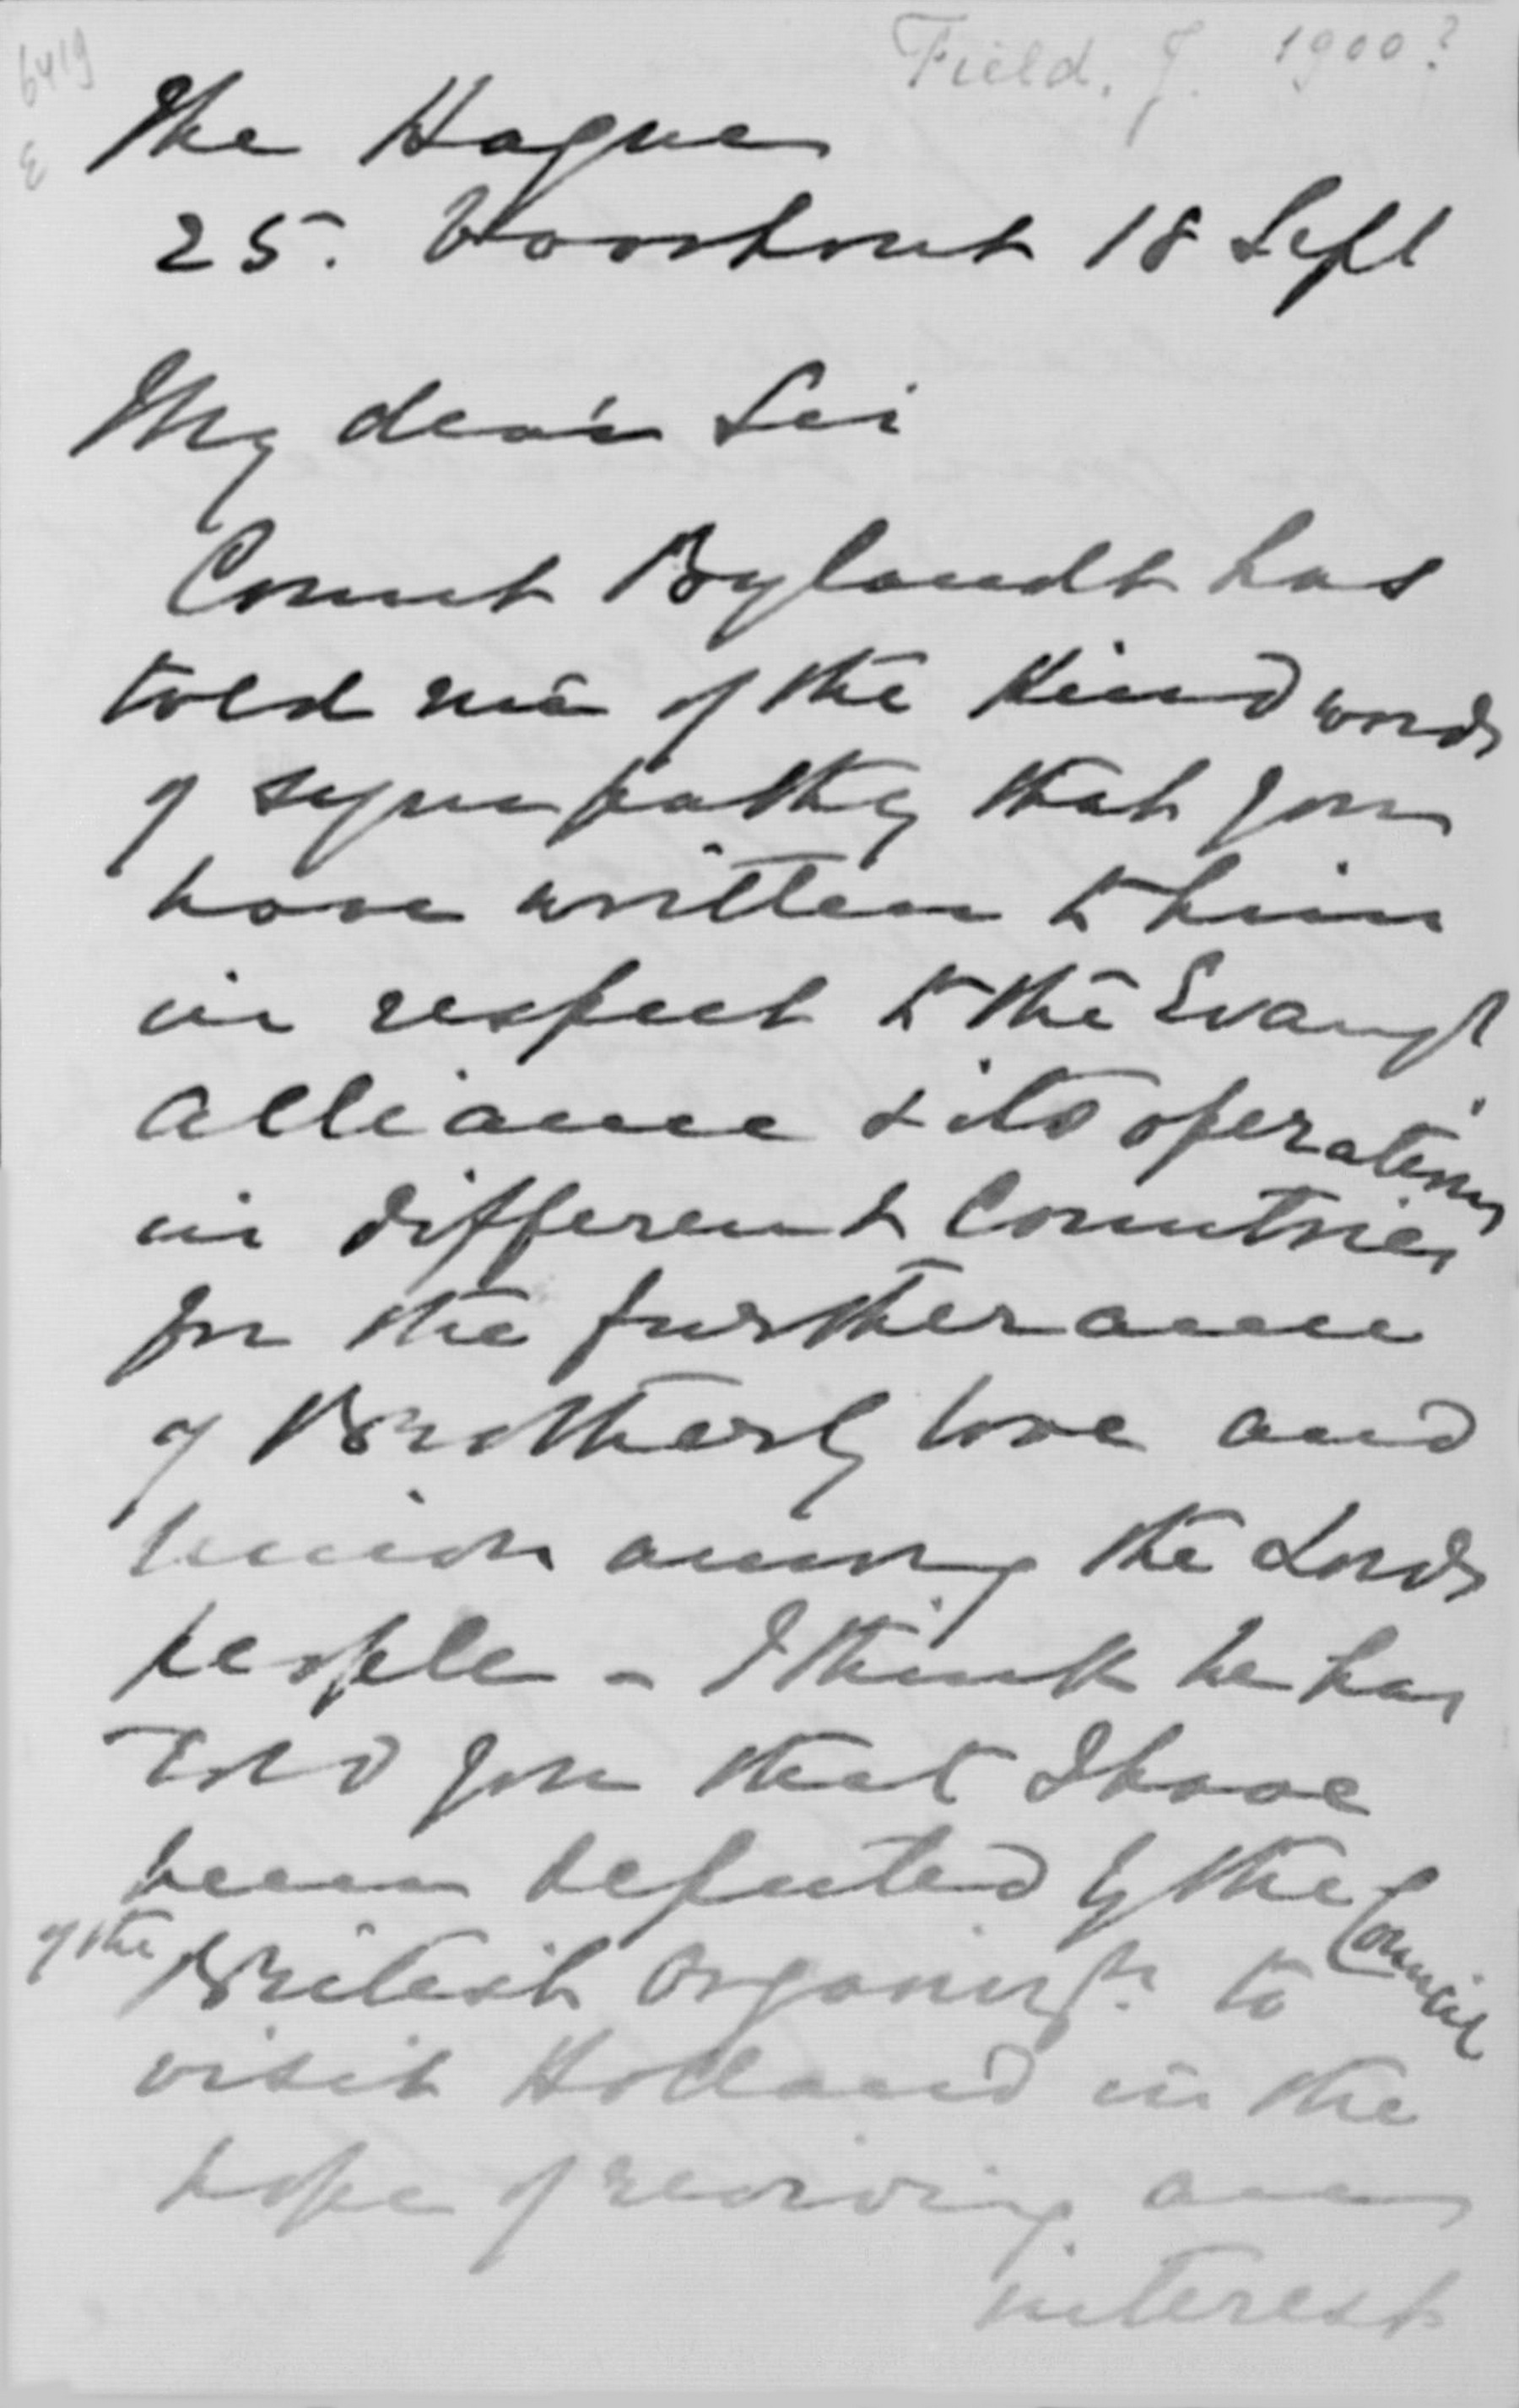 Field. J. 1900?
6419
E
The Hague
25. Voorhout 18 Sept
My dear Sir
Count Bylandt has
told me of the kind words
of sympathy that you
have written to him
in respect to the Evangl
Alliance & its operations
in different Countries
for the furtherance
of Brotherly love and
Union among the Lords
people - I think he has
told you that I have
been deputed by the Council
of the British Organizn to
visit Holland in the
hope of reviving an
interest